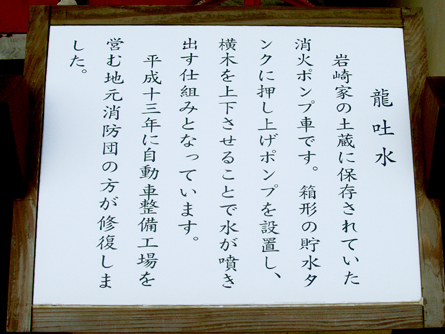 龍吐水
岩崎家の土蔵に保存されていた
消火ポンプ車です。箱形の貯水タ
ンクに押し上げポンプを設置し、
横木を上下させることで水が噴き
出す仕組みとなっています。
平成十三年に自動車整備工場を
営む地元消防団の方が修復しま
した。